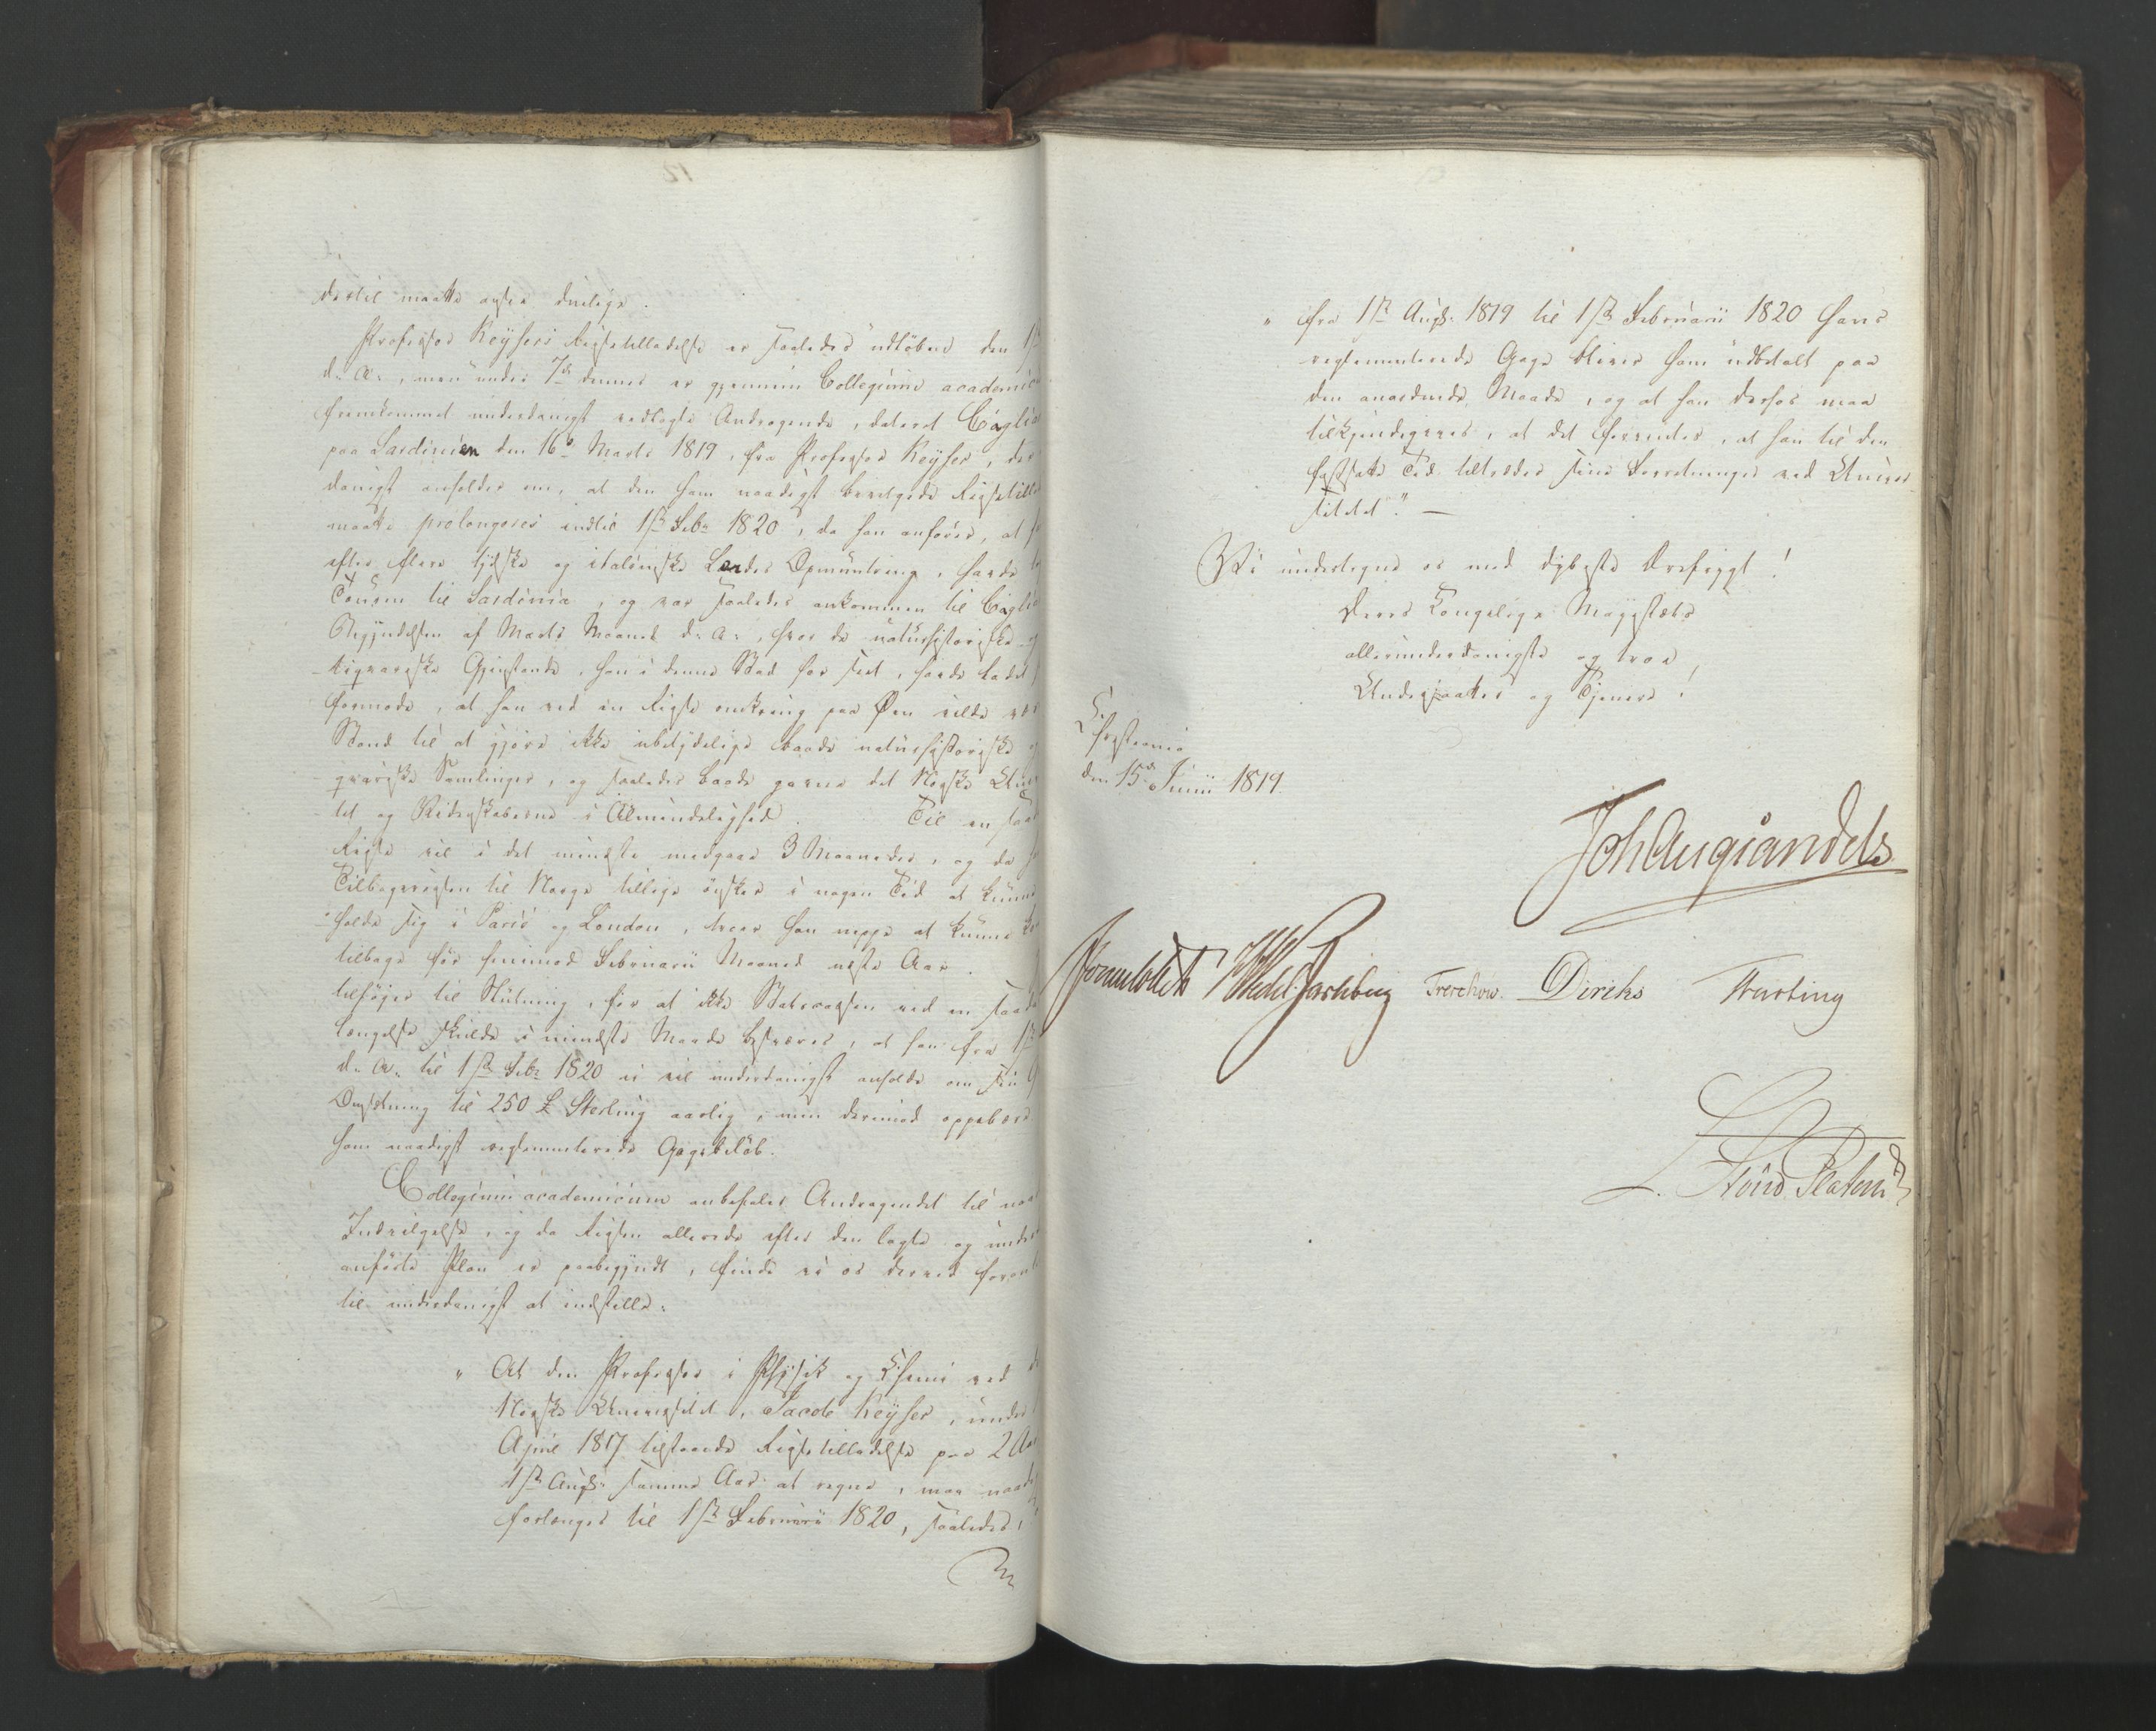 dertil maatte ansees duelige.
Professor Keysers Reisetilladelse er saaledes udløben den 1ste
d. A., men under 7de dennes er gjennem Collegium academicum
fremkommet underdanigst vedlagte Andragende, dateret Cagliari
paa Sardinien den 16de Marts 1819, fra Professor Keyser, der
danigst anholder om, at den ham naadigst bevilgede Reisetill
maatte prolongeres indtil 1ste Febr 1820, da han anfører, at
efter flere tydske og italienske Lærdes Opmuntring, havde
Touren til Sardinia, og var saaledes ankommen til Cagli
Begyndelsen af Marts Maaned d. A., hvor de naturhistoriske og
tiqvariske Gjenstande, han i denne Stad har seet, havde ladet
formode, at han ved en Reise omkring paa Øen vilde være
Stand til at gjøre ikke ubetydelige baade naturhistoriske og
qvariske Samlinger, og saaledes baade gavne det Norske Univer
tet og Videnskaberne i Almindelighed. Til en saa
Reise vil i det mindste medgaae 3 Maaneder, og da
Tilbagereisen til Norge tillige ønsker i nogen Tid at kunne
holde sig i Paris og London, troer han neppe at kunne
tilbage før henimod Februarii Maaned næste Aar.
tilføjer til Slutning, for at ikke Statscassen ved en saada
længelse skulde i mindste Maade besværes, at han fra 1ste
d. A. til 1ste Febr 1820 ei vil underdanigst anholde om sin
Omsætning til 250 £ Sterling aarlig, men derimod oppebære
ham naadigst reglementerede Gagebeløb.
Collegium academicum anbefaler Andragendet til naa
Indvilgelse, og da Reisen allerede efter den lagte og under
anførte Plan er paabegyndt, finde vi os derved foran
til underdanigst at indstille:
" At den Professor i Physik og Chemi ved det
Norske Universitet, Jacob Keyser, under
April 1817 tilstaaede Reisetilladelse paa 2 Aar
1ste Augs. samme Aar at regne, maa naadi
forlænges til 1ste Februarii 1820, saaledes,
" fra 1ste Augs. 1819 til 1ste Februarii 1820 hans
reglementerede Gage bliver ham udbetalt paa
den anordnede Maade, og at han derhos maa
tilkjendegives, at det forventes, at han til den
fastsatte Tid tiltræder sine Forretninger ved Univer-
sitetet." —
Vi undertegne os med dybeste Ærefrygt!
Deres Kongelige Majestæts
allerunderdanigste og troe
Undersaatter og Tjenere!
Christiania
den 15de Junii 1819.
Joh Aug Sandels
Sommerhielm HWedel Jarlsberg Treschow. Diriks Fasting
L. Stoud Platou